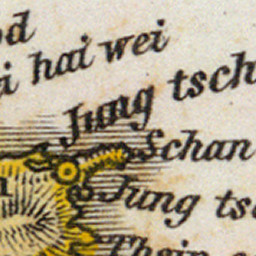 od
i hai wei
Jung tsch
Schan
Jung ts